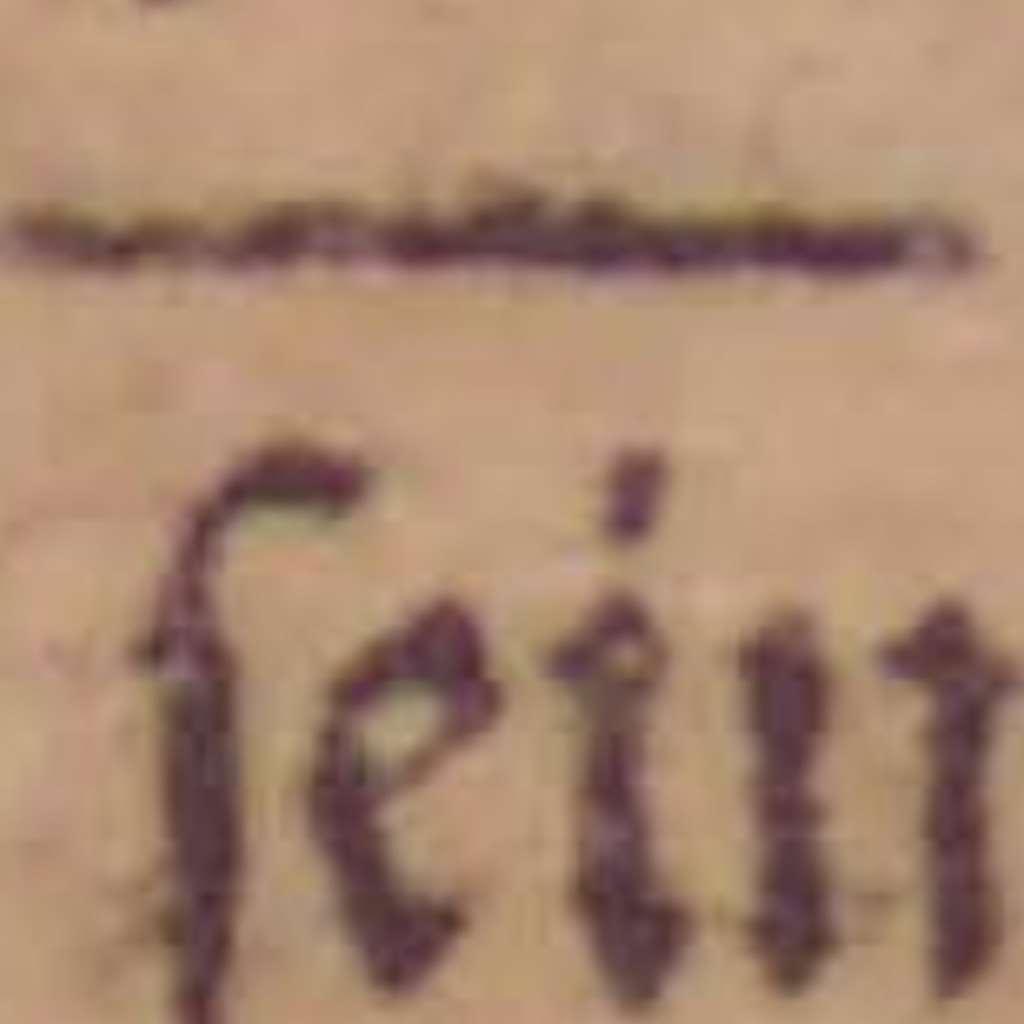 ſein